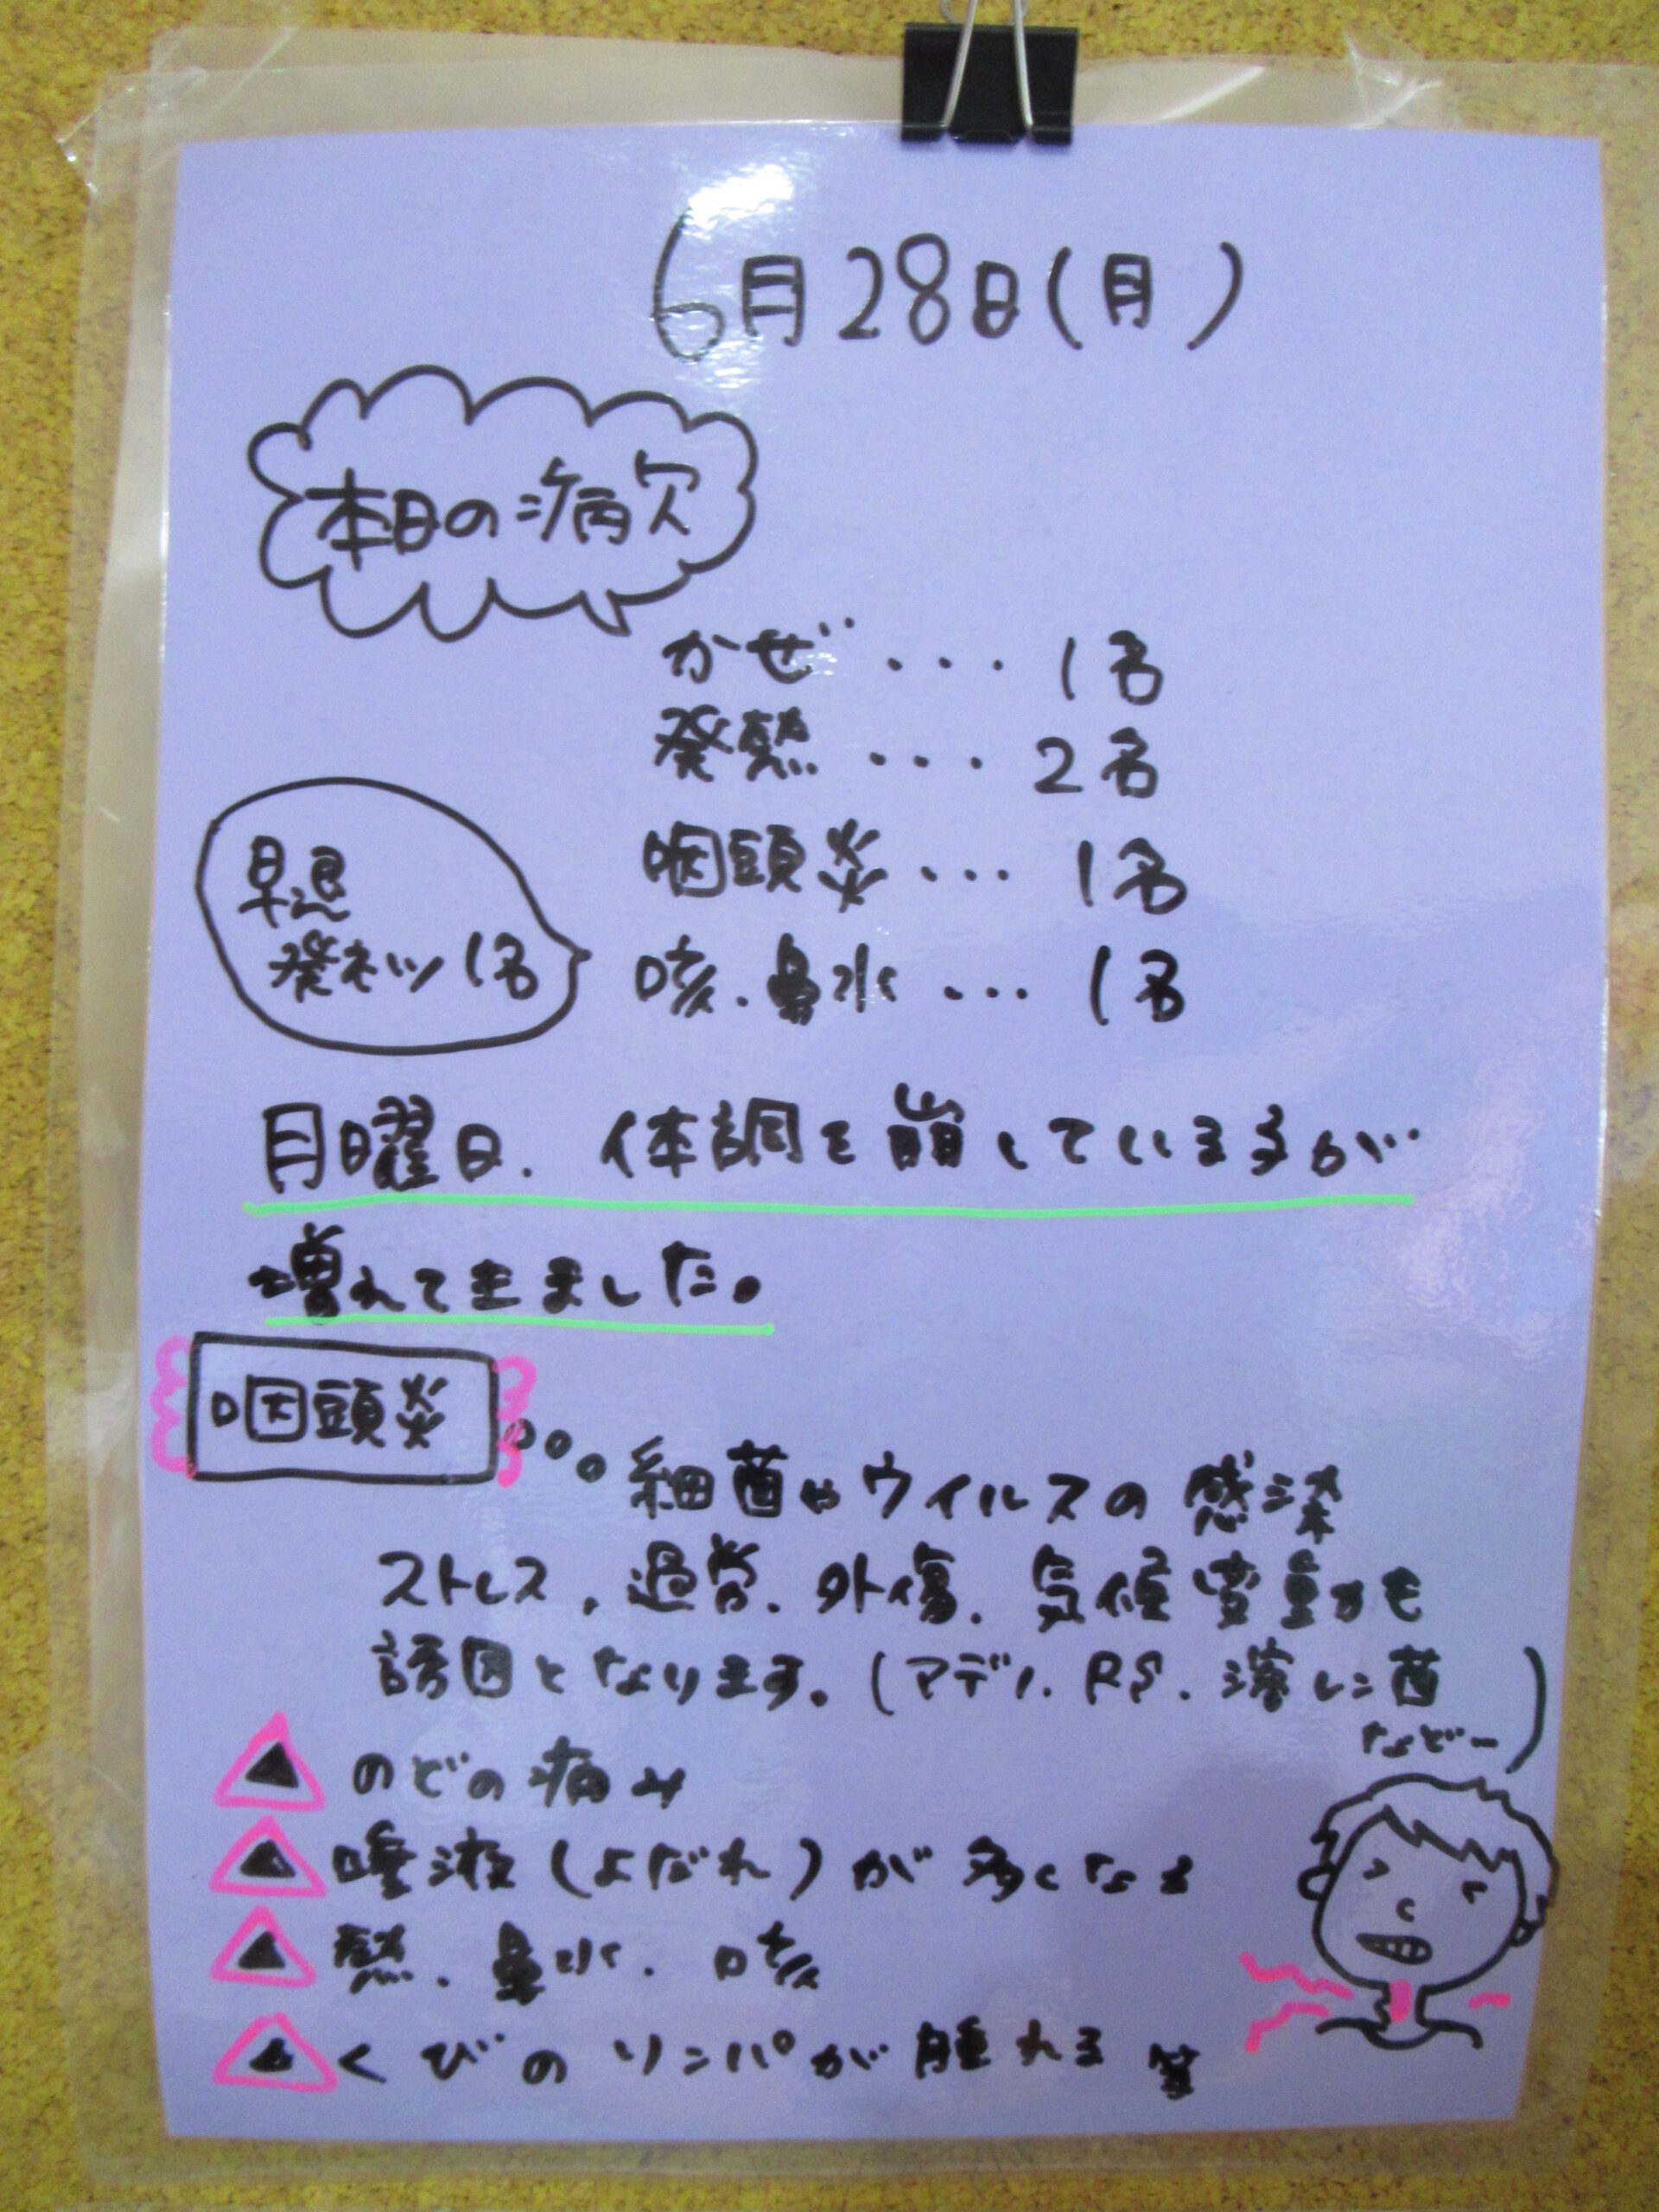 6月28日(月)
本日の病欠
かぜ・・・1名
発熱・・・2名
咽頭炎・・・1名
咳.鼻水・・・1名
早退
発ネツ1名
月曜日.体調を崩している子が
増えてきました。
咽頭炎
...細菌やウイルスの感染
ストレス.過労.外傷.気候変動も
誘因となります。(アデノ.RS.溶レン菌
などー)
のどの痛み
唾液(よだれ)が多くなる
熱.鼻水.咳
くびのリンパが腫れる 等